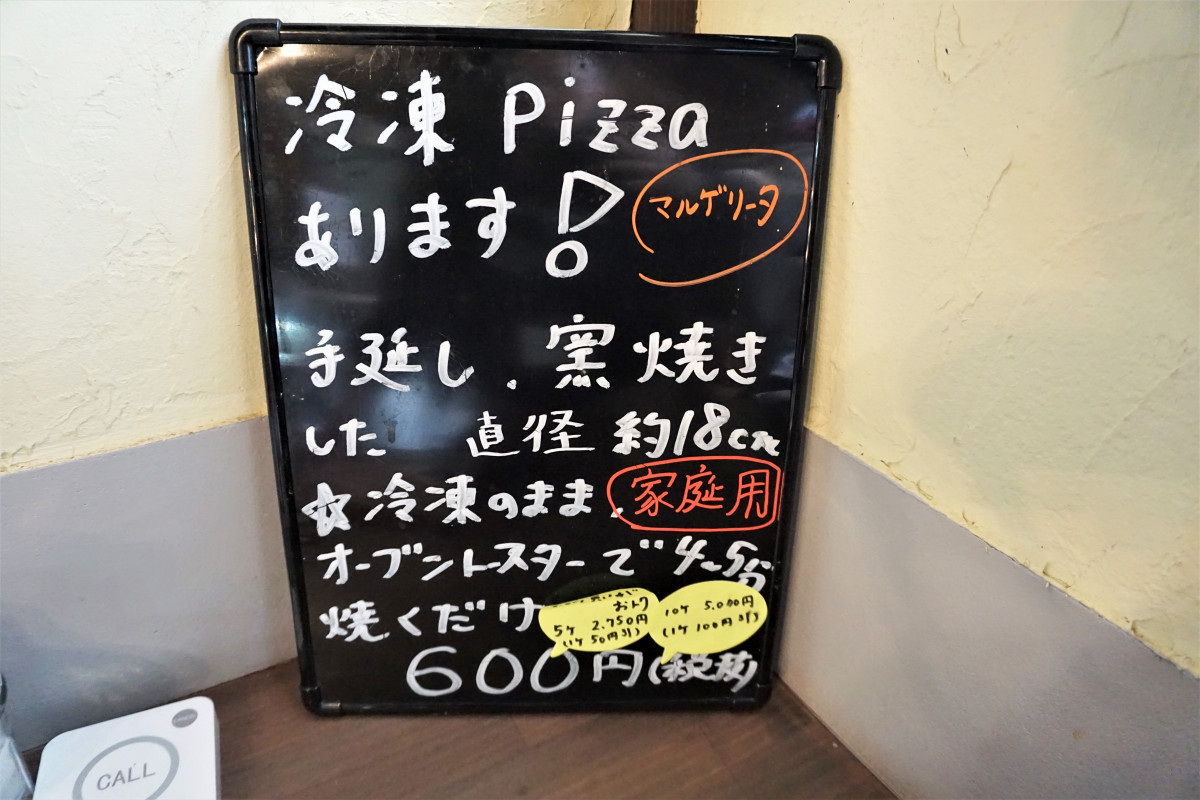 冷凍 Pizza
あります!
マルゲリータ
手延し、窯焼き
した 直径 約18cm
☆冷凍のまま、家庭用
オーブントースターで 4~5分
焼くだけ
おトク
5ケ 2.750円
(1ケ 50円引)
10ケ 5.000円
(1ケ 100円引)
600円(税抜)
CALL